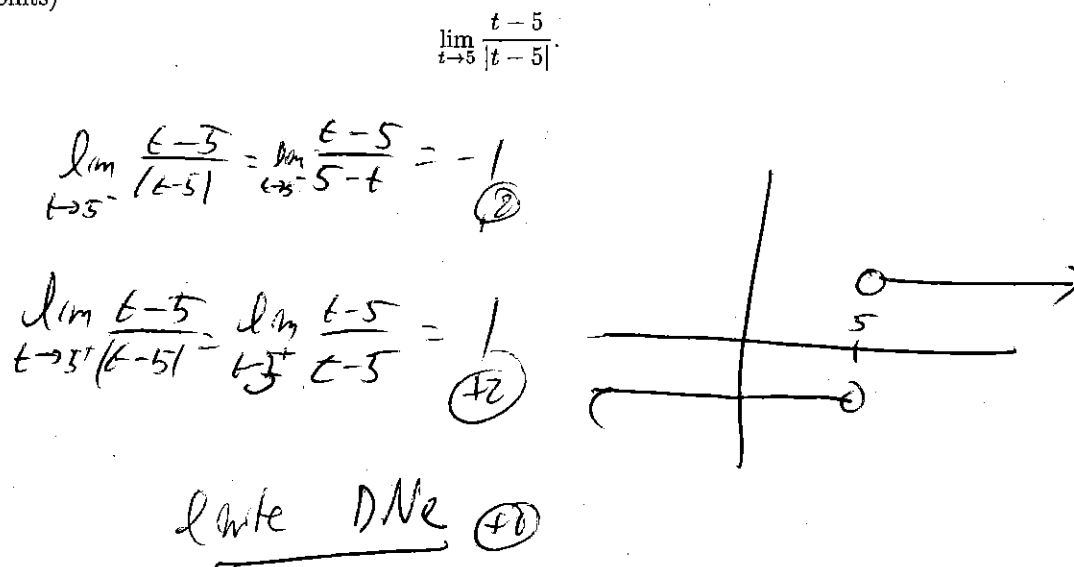 lim t→5 (t − 5)/|t − 5|.
lim t→5⁻ (t−5)/|t−5| = lim t→5⁻ (t−5)/(5−t) = −1
lim t→5⁺ (t−5)/|t−5| = lim t→5⁺ (t−5)/(t−5) = 1
+2
5
DNE